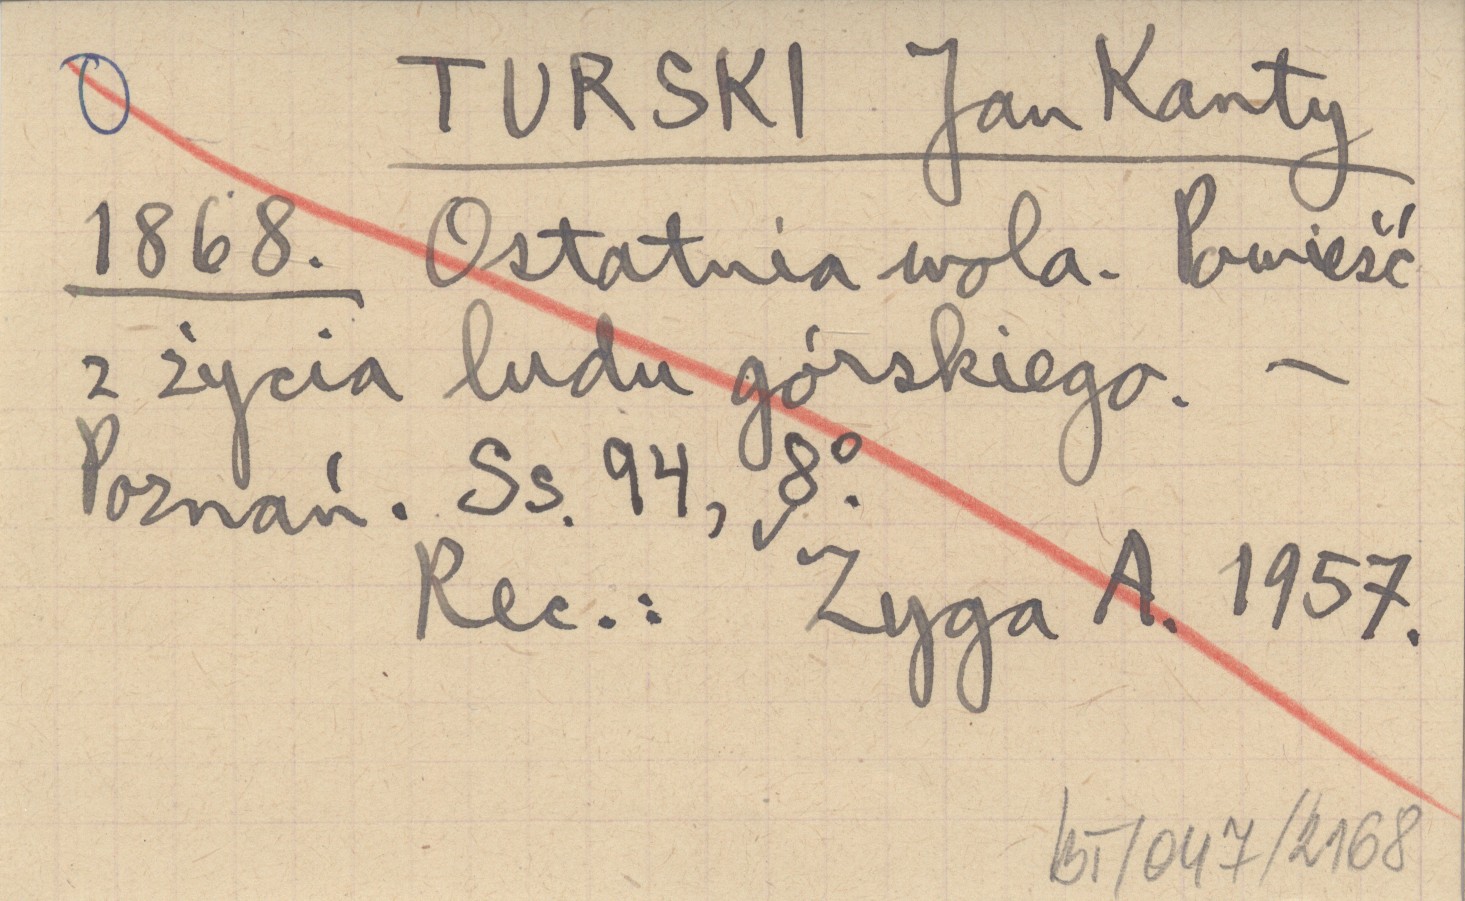 O TURSKI Jan Kanty
1868. Ostatnia wola. Powieść
z życia ludu górskiego. –
Poznań. Ss. 94, 8°.
Rec.: Zyga A. 1957.
BT/047/2168